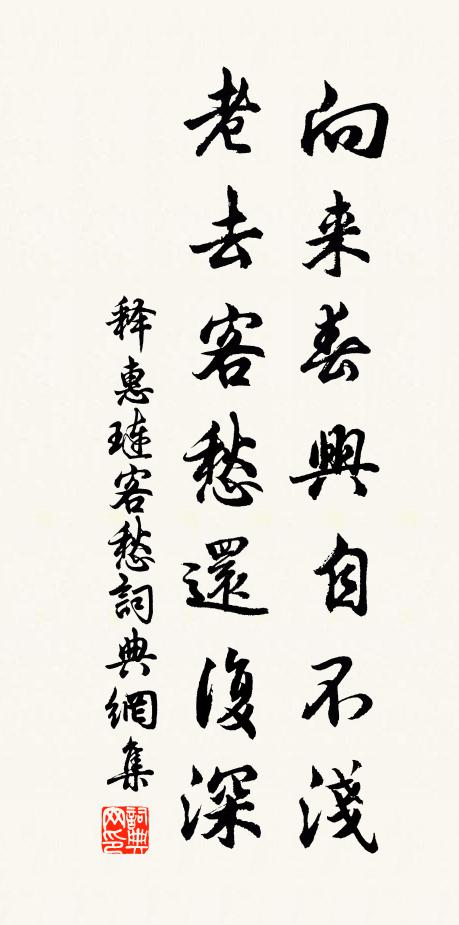 向来春興自不淺
老去客愁還復深
释惠璉客愁詞典網集
詞典网印